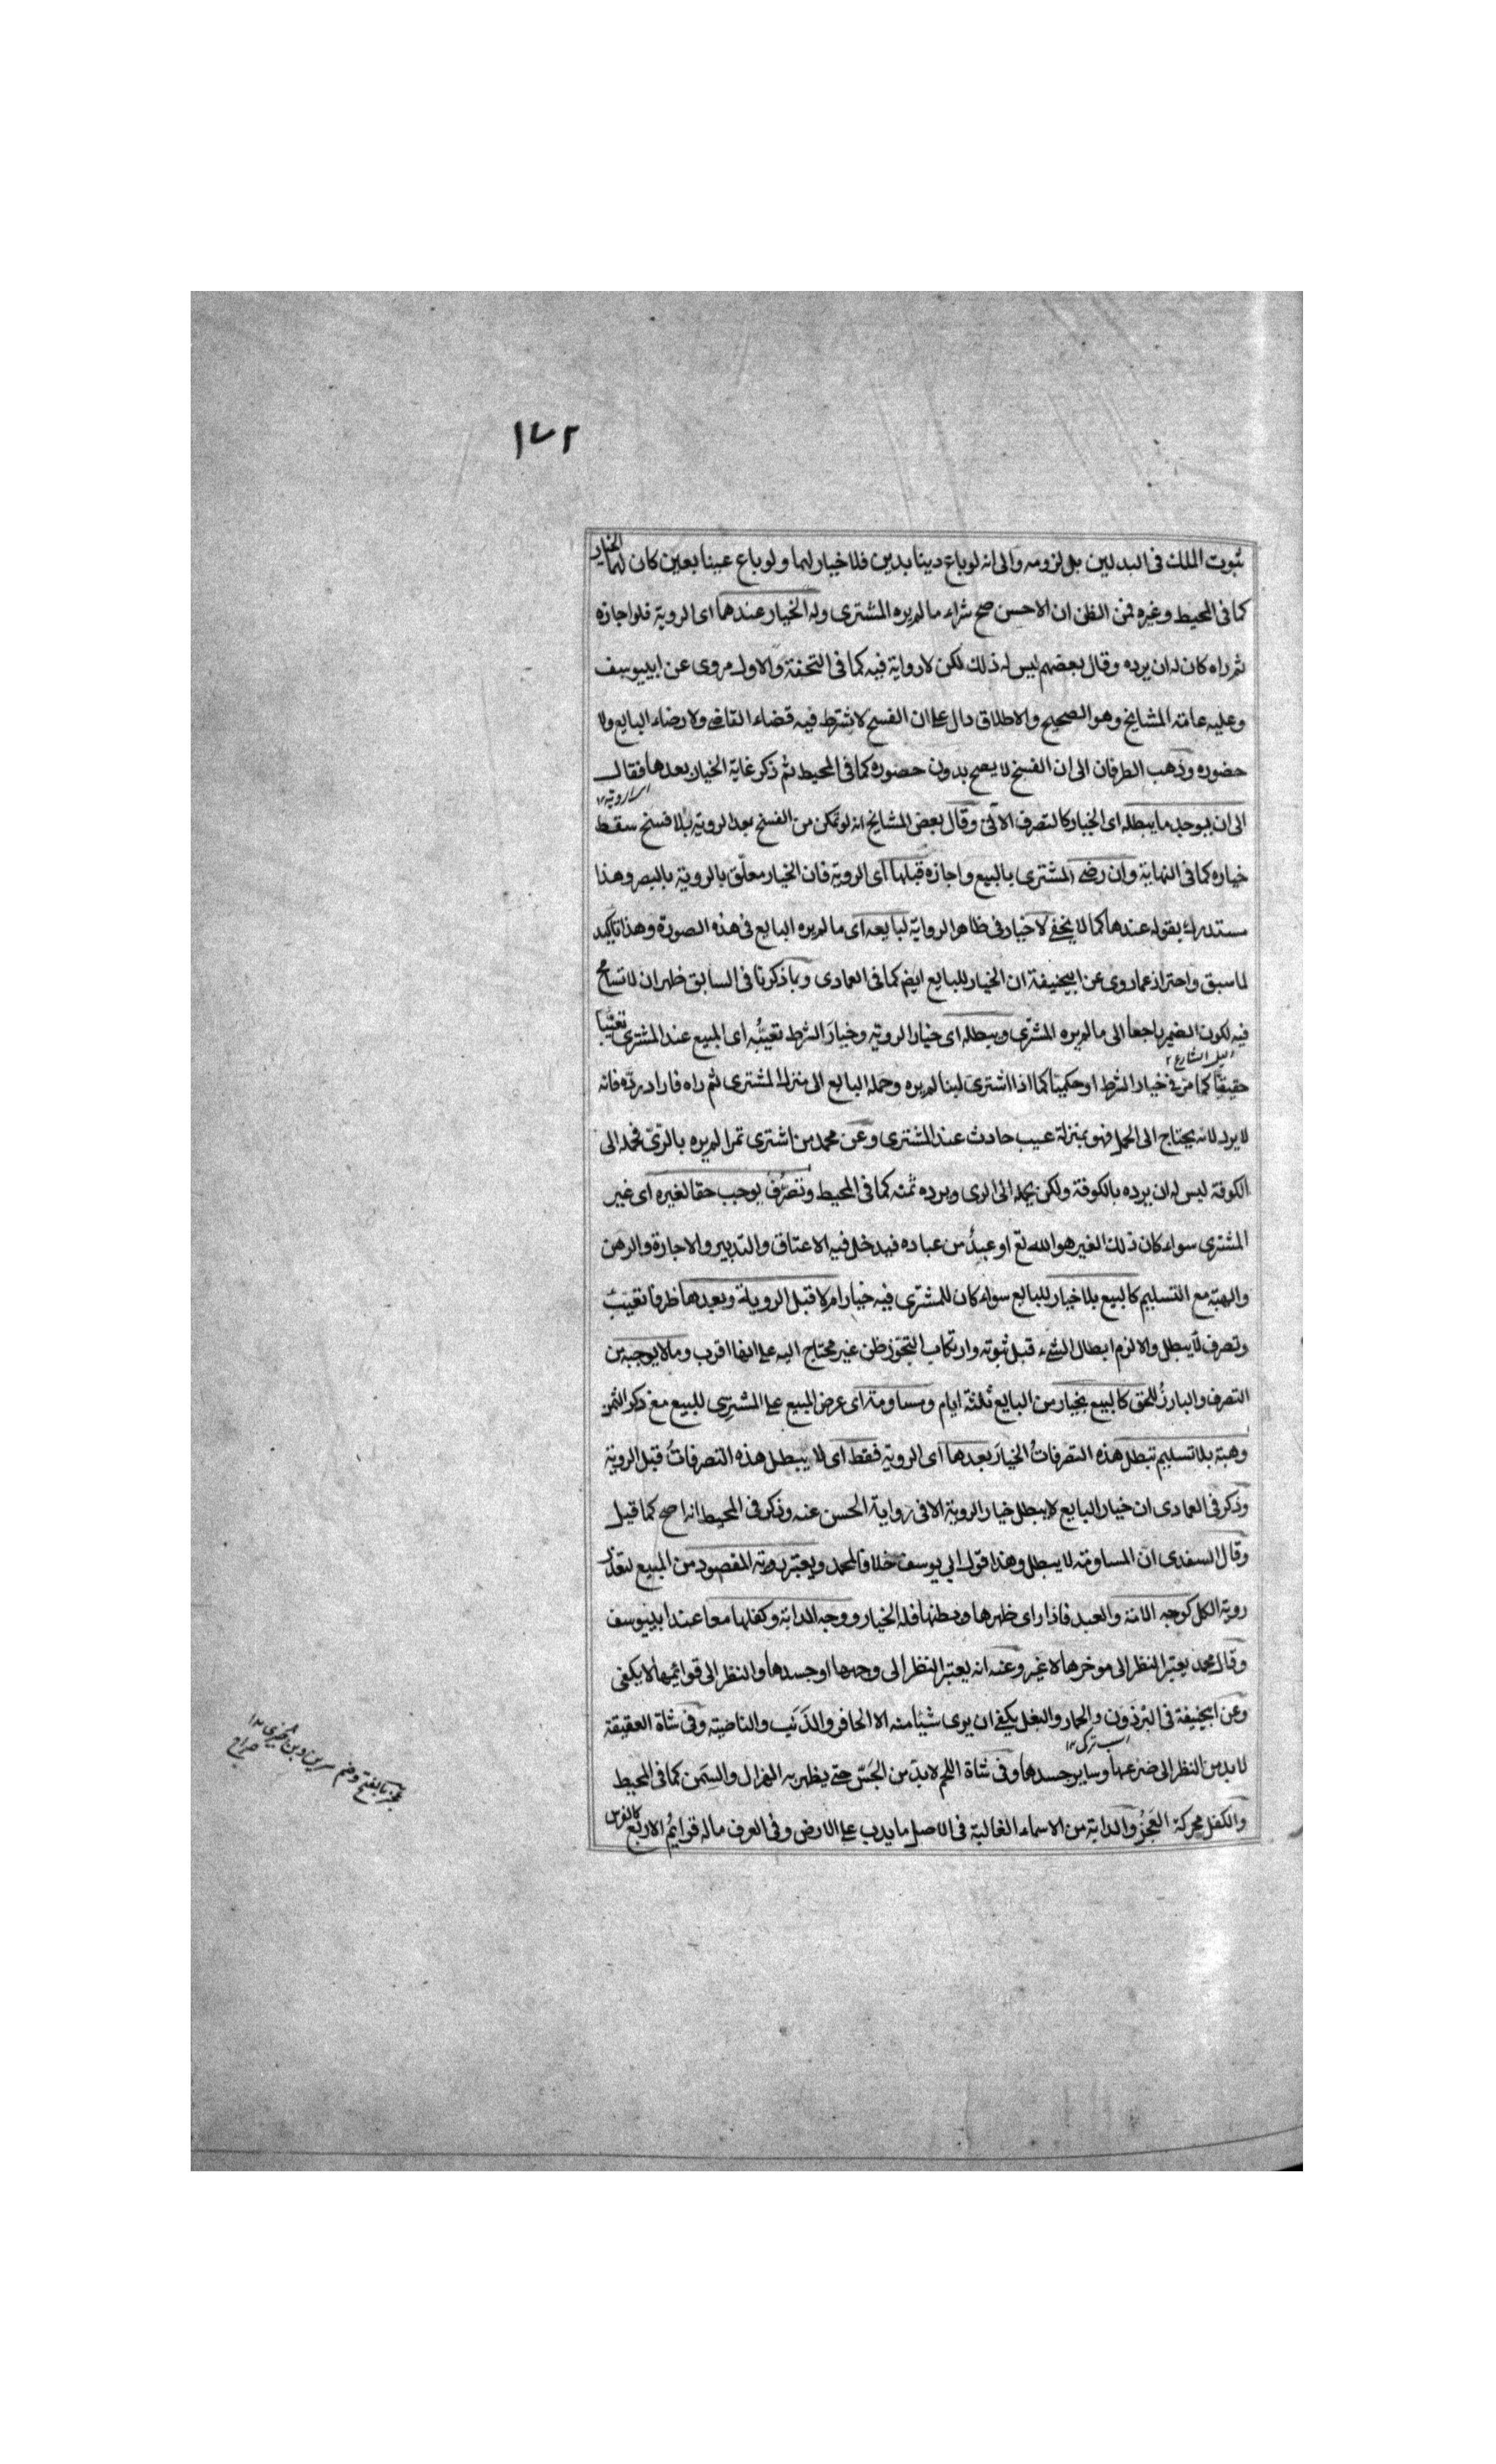 ١٧٢
ثبوت الملك فى البدلين بل لزومه والى انه لو باع دينا بدين فلا خيار لهما ولو باع عينا بعين كان لهما الخيار
كما فى المحيط وغيره فمن الظن ان الاحسن صح شراء ما لم يره المشترى وله الخيار عندها اى الروية فلو اجازه
ثم راه كان له ان يرده وقال بعضهم ليس له ذلك لكن لا رواية فيه كما فى التحفة والاول مروى عن ابييوسف
وعليه عامة المشايخ وهو الصحيح والاطلاق دال على ان الفسخ لا يشترط فيه قضاء القاضى ولا رضاء البايع ولا
حضوره وذهب الطرفان الى ان الفسخ لا يصح بدون حضوره كما فى المحيط ثم ذكر غاية الخيار بعدها فقال
الى ان يوجد ما يبطله اى الخيار كالتصرف الآتى وقال بعض المشايخ انه لو تمكن من الفسخ بعد الروية بلا فسخ سقط
خياره كما فى النهاية وان رضى المشترى بالبيع واجازه قبلها اى الروية فان الخيار معلّق بالروية بالبصر وهذا
مستدرك بقوله عندها كما لا يخفى لا خيار فى ظاهر الرواية لبايعه اى ما لم يره البايع فى هذه الصورة وهذا تاكيد
لما سبق واحتراز عما روى عن ابيحنيفة ان الخيار للبايع ايضا كما فى العمادى وبما ذكرنا فى السابق ظهر ان لا تسامح
فيه لكون الضمير راجعا الى ما لم يره المشترى ويبطله اى خيار الروية وخيار الشرط تعيّبُه اى المبيع عند المشترى تعيّبا
حقيقيّا كما مرّ فى خيار الشرط او حكميّا كما اذا اشترى لبنا لم يره وحمله البايع الى منزل المشترى ثم راه فاراد ردّه فانه
لا يرد لانه يحتاج الى الحمل فهو بمنزلة عيب حادث عند المشترى وعن محمد من اشترى تمرا لم يره بالرّىّ فحمله الى
الكوفة ليس له ان يرده بالكوفة ولكن يحمله الى الرى ويرده ثمنه كما فى المحيط وتصرُّفٌ يوجب حقا لغيره اى غير
المشترى سواء كان ذلك الغير هو الله تع او عبدٌ من عباده فيدخل فيه الاعتاق والتدبير والاجارة والرهن
والهبة مع التسليم كالبيع بلا خيار للبايع سواء كان للمشترى فيه خيار ام لا قبل الروية وبعدها ظرفا تعيّب
وتصرف لا يبطل والا لزم ابطال الشىء قبل ثبوته وارتكاب التجوّز ظن غير محتاج اليه على انها اقرب وما لا يوجبه من
التصرف والبارزُ للحق كالبيع بخيار من البايع ثلثة ايام ومساومة اى عرض المبيع على المشترى للبيع مع ذكر الثمن
وهبة بلا تسليم تبطل هذه التصرفاتُ الخيارَ بعدها اى الروية فقط اى لا يبطل هذه التصرفاتُ قبل الروية
وذكر فى العمادى ان خيار البايع لا يبطل خيار الروية الا فى رواية الحسن عنه وذكر فى المحيط انه اصح كما قيل
وقال السغدى ان المساومة لا يبطل وهذا قول ابى يوسف خلافا لمحمد ويعتبر روية المقصود من المبيع لتعذر
روية الكل كوجه الامة والعبد فاذا راى ظهرها وبطنها فله الخيار ووجه الدابة وكفلها معا عند ابييوسف
وقال محمد يعتبر النظر الى موخرها لا غير وعنه انه يعتبر النظر الى وجهها او جسدها والنظر الى قوائمها لا يكفى
وعن ابيحنيفة فى البرذون والحمار والبغل يكفى ان يرى شيئا منه الا الحافر والذنب والناصية وفى شاة العقيقة
لا بد من النظر الى ضرعها وساير جسدها وفى شاة اللحم لا بدّ من الجَسّ حتى يظهر به الهزال والسِّمن كما فى المحيط
والكفل محركة العَجُز والدابة من الاسماء الغالبة فى الاصل ما يدب على الارض وفى العرف ما له قوايمُ الاربع كالفرس